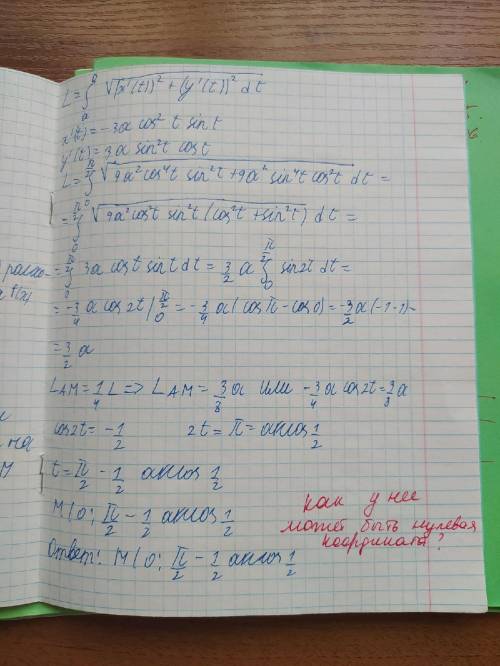 L = ∫ₐᵝ √(x'(t))² + (y'(t))² dt
x'(t) = -3a cos² t sin t
y'(t) = 3a sin² t cos t
L = ∫₀^(π/2) √9a² cos⁴t sin²t + 9a² sin⁴t cos²t dt =
= ∫₀^(π/2) √9a² cos²t sin²t (cos²t + sin²t) dt =
= ∫₀^(π/2) 3a cos t sin t dt = 3/2 a ∫₀^(π/2) sin 2t dt =
= -3/4 a cos 2t |₀^(π/2) = -3/4 a (cos π - cos 0) = -3/2 a (-1-1) =
= 3/2 a
L_AM = 1/4 L => L_AM = 3/8 a или -3/4 a cos 2t = 3/8 a
cos 2t = -1/2 2t = π = arccos 1/2
t = π/2 - 1/2 arccos 1/2
M (0; π/2 - 1/2 arccos 1/2
Ответ: M (0; π/2 - 1/2 arccos 1/2
как у нее
может быть нулевая
координат?
на
M